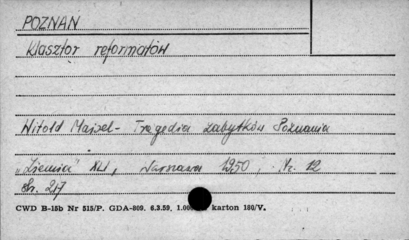 POZNAŃ
Klasztor reformatów
Witold Maisel - Tragedia zabytków Poznania
"Ziemia" XLI, Warszawa 1950, Nr. 12
Str. 217
CWD B-15b Nr 515/P. GDA-809. 6.3.59. 1.00 karton 180/V.